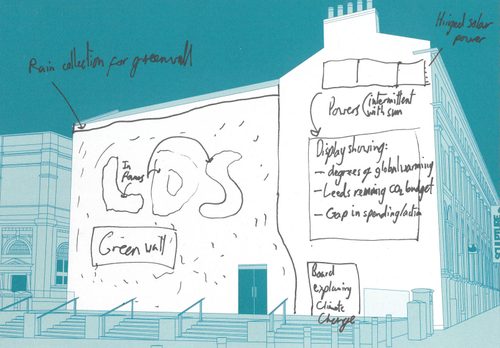 Hinged solar
power
Rain collection for greenwall
Powers
intermittent
with sun
Display showing:
- degrees of global warming
- Leeds remaining CO2 budget
- Gap in spending/action
In
Pansies
LDS
Green wall
Board
explaining
Climate
Change